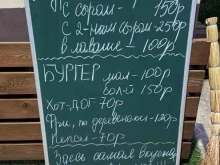 С сыром - 150р
С 2-ным сыром - 250р
в лаваше - 100р
БУРГЕР мал - 100р
бол-й 150р
ХОТ-ДОГ 70р
Фри, по деревенски - 120р
70р
Здесь самая вкусная